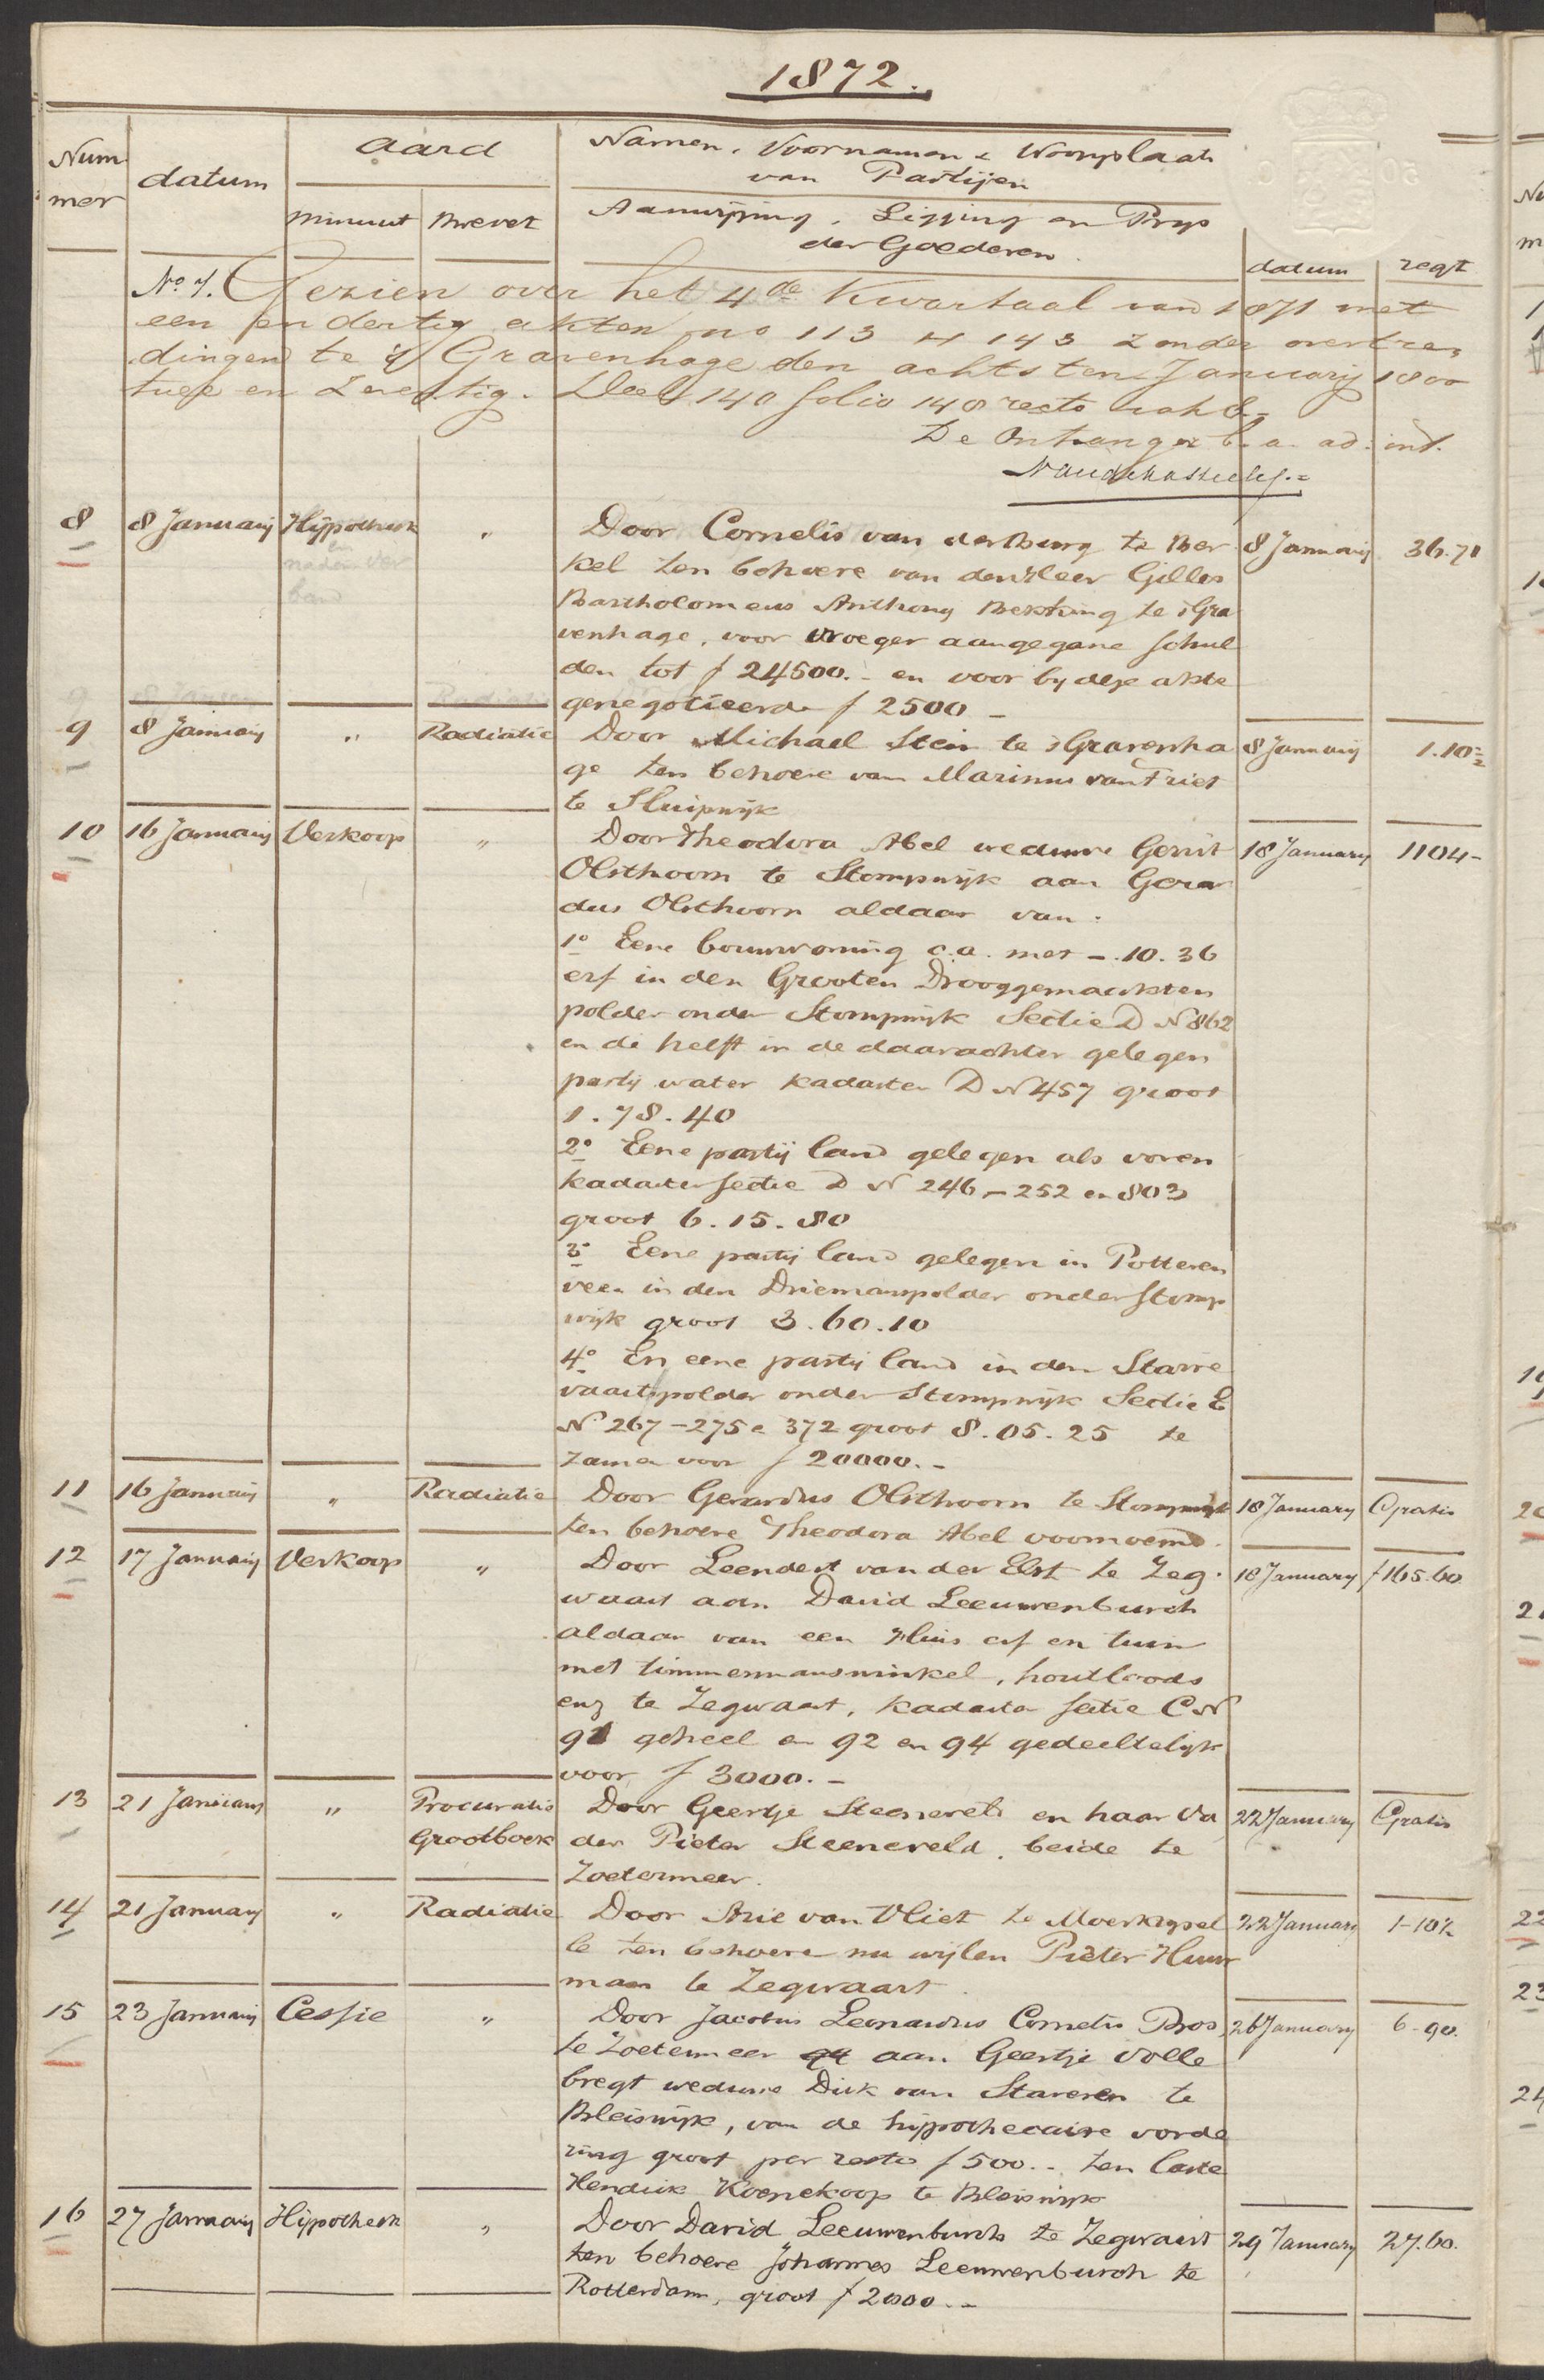 1872.
Num
mer
datum
aard
minuut
brevet
Namen, Voornamen & Woonplaats
van Partijen
Aanwijzing, Ligging en Prijs
der Goederen
datum
regt
No 7. Gezien over het 4de Kwartaal van 1871 met
een en dertig akten no 113 tt 143 zonder overtre,
dingen te 's Gravenhage den achtsten January 1800
twee en zeventig. Deel 140 folio 148 recto vak 8.
De Ontvanger b. a. ad. int.
8 8 January Hypotheek " Door Cornelis van der Burg te Ber 8 January 36.71
en
nader ver
band
kel ten behoeve van den Heer Gilles
Bartholomeus Anthony te 's Gra
venhage, voor vroeger aangegane schul
den tot f 24500.- en voor by deze akte
genegotieerde f 2500 -
9 8 January " Radiatie Door Michael Stein te 's Gravenha 8 January 1.10½
ge ten behoeve van Marinus van Triet
te Sluipwijk
10 16 January Verkoop " Door Theodora Abel weduwe Gerrit 18 January 1104-
Olsthoorn te Stompwijk aan Gerar
dus Olsthoorn aldaar van:
1o Eene bouwwoning c.a. met -.10.36
erf in den Grooten Drooggemaakten
polder onder Stompwijk Sectie D N 862
en de helft in de daarachter gelegen
partij water kadaster D N 457 groot
1.78.40
2o Eene partij land gelegen als voren
kadaster sectie D N 246 - 252 en 803
groot 6.15.80
3o Eene partij land gelegen in Potteren
veen in den Driemanspolder onder Stomp
wijk groot 3.60.10
4o En eene partij land in den Starre
vaartspolder onder Stompwijk Sectie E
No 267 - 275 e 372 groot 8.05.25 te
zamen voor f 20000.-
11 16 January " Radiatie Door Gerardus Olsthoorn te Stompwijk 18 January Gratis
ten behoeve Theodora Abel voornoemd.
12 17 January Verkoop " Door Leendert van der Elst te Zeg 18 January f 165.60
waart aan David Leeuwenburch
aldaar van een Huis erf en tuin
met timmermanswinkel, houtloods
enz te Zegwaart, kadaster sectie C N
91 geheel en 92 en 94 gedeeltelijk
voor f 3000.-
13 21 January " Procuratie Door Geertje Steeneveld en haar va 22 January Gratis
Grootboek der Pieter Steeneveld, beide te
Zoetermeer.
14 21 January " Radiatie Door Arie van Vliet te Moerkapel 22 January 1-10½
le ten behoeve nu wijlen Pieter Huur
man te Zegwaart.
15 23 January Cessie " Door Jacobus Leonardus Cornelis Bos, 26 January 6-90.
te Zoetermeer aan Geertje Volle
bregt weduwe Dirk van Staveren te
Bleiswijk, van de hypothecaire vorde
ring groot per resto f 500.- ten laste
Hendrik Koenekoop te Bleiswijk
16 27 January Hypotheek " Door David Leeuwenburch te Zegwaart 29 January 27.60.
ten behoeve Johannes Leeuwenburch te
Rotterdam, groot f 2000.-